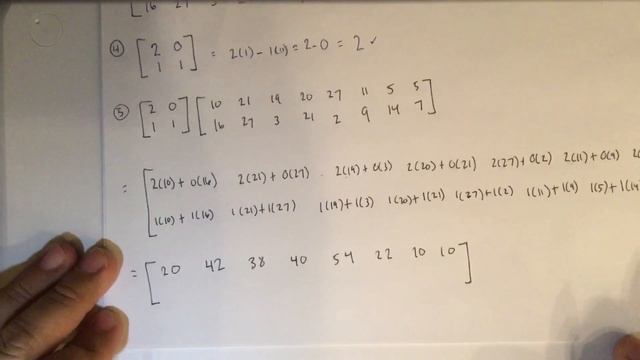 [16 27 3
④ [2 0 = 2(1) - 1(0) = 2-0 = 2 ✓
1 1]
⑤ [2 0 [10 21 19 20 27 11 5 5
1 1] 16 27 3 21 2 9 14 7]
= [2(10) + 0(16) 2(21) + 0(27) 2(19) + 0(3) 2(20) + 0(21) 2(27) + 0(2) 2(11) + 0(9)
1(10) + 1(16) 1(21) + 1(27) 1(19) + 1(3) 1(20) + 1(21) 1(27) + 1(2) 1(11) + 1(9) 1(5) + 1(14
= [20 42 38 40 54 22 10 10]